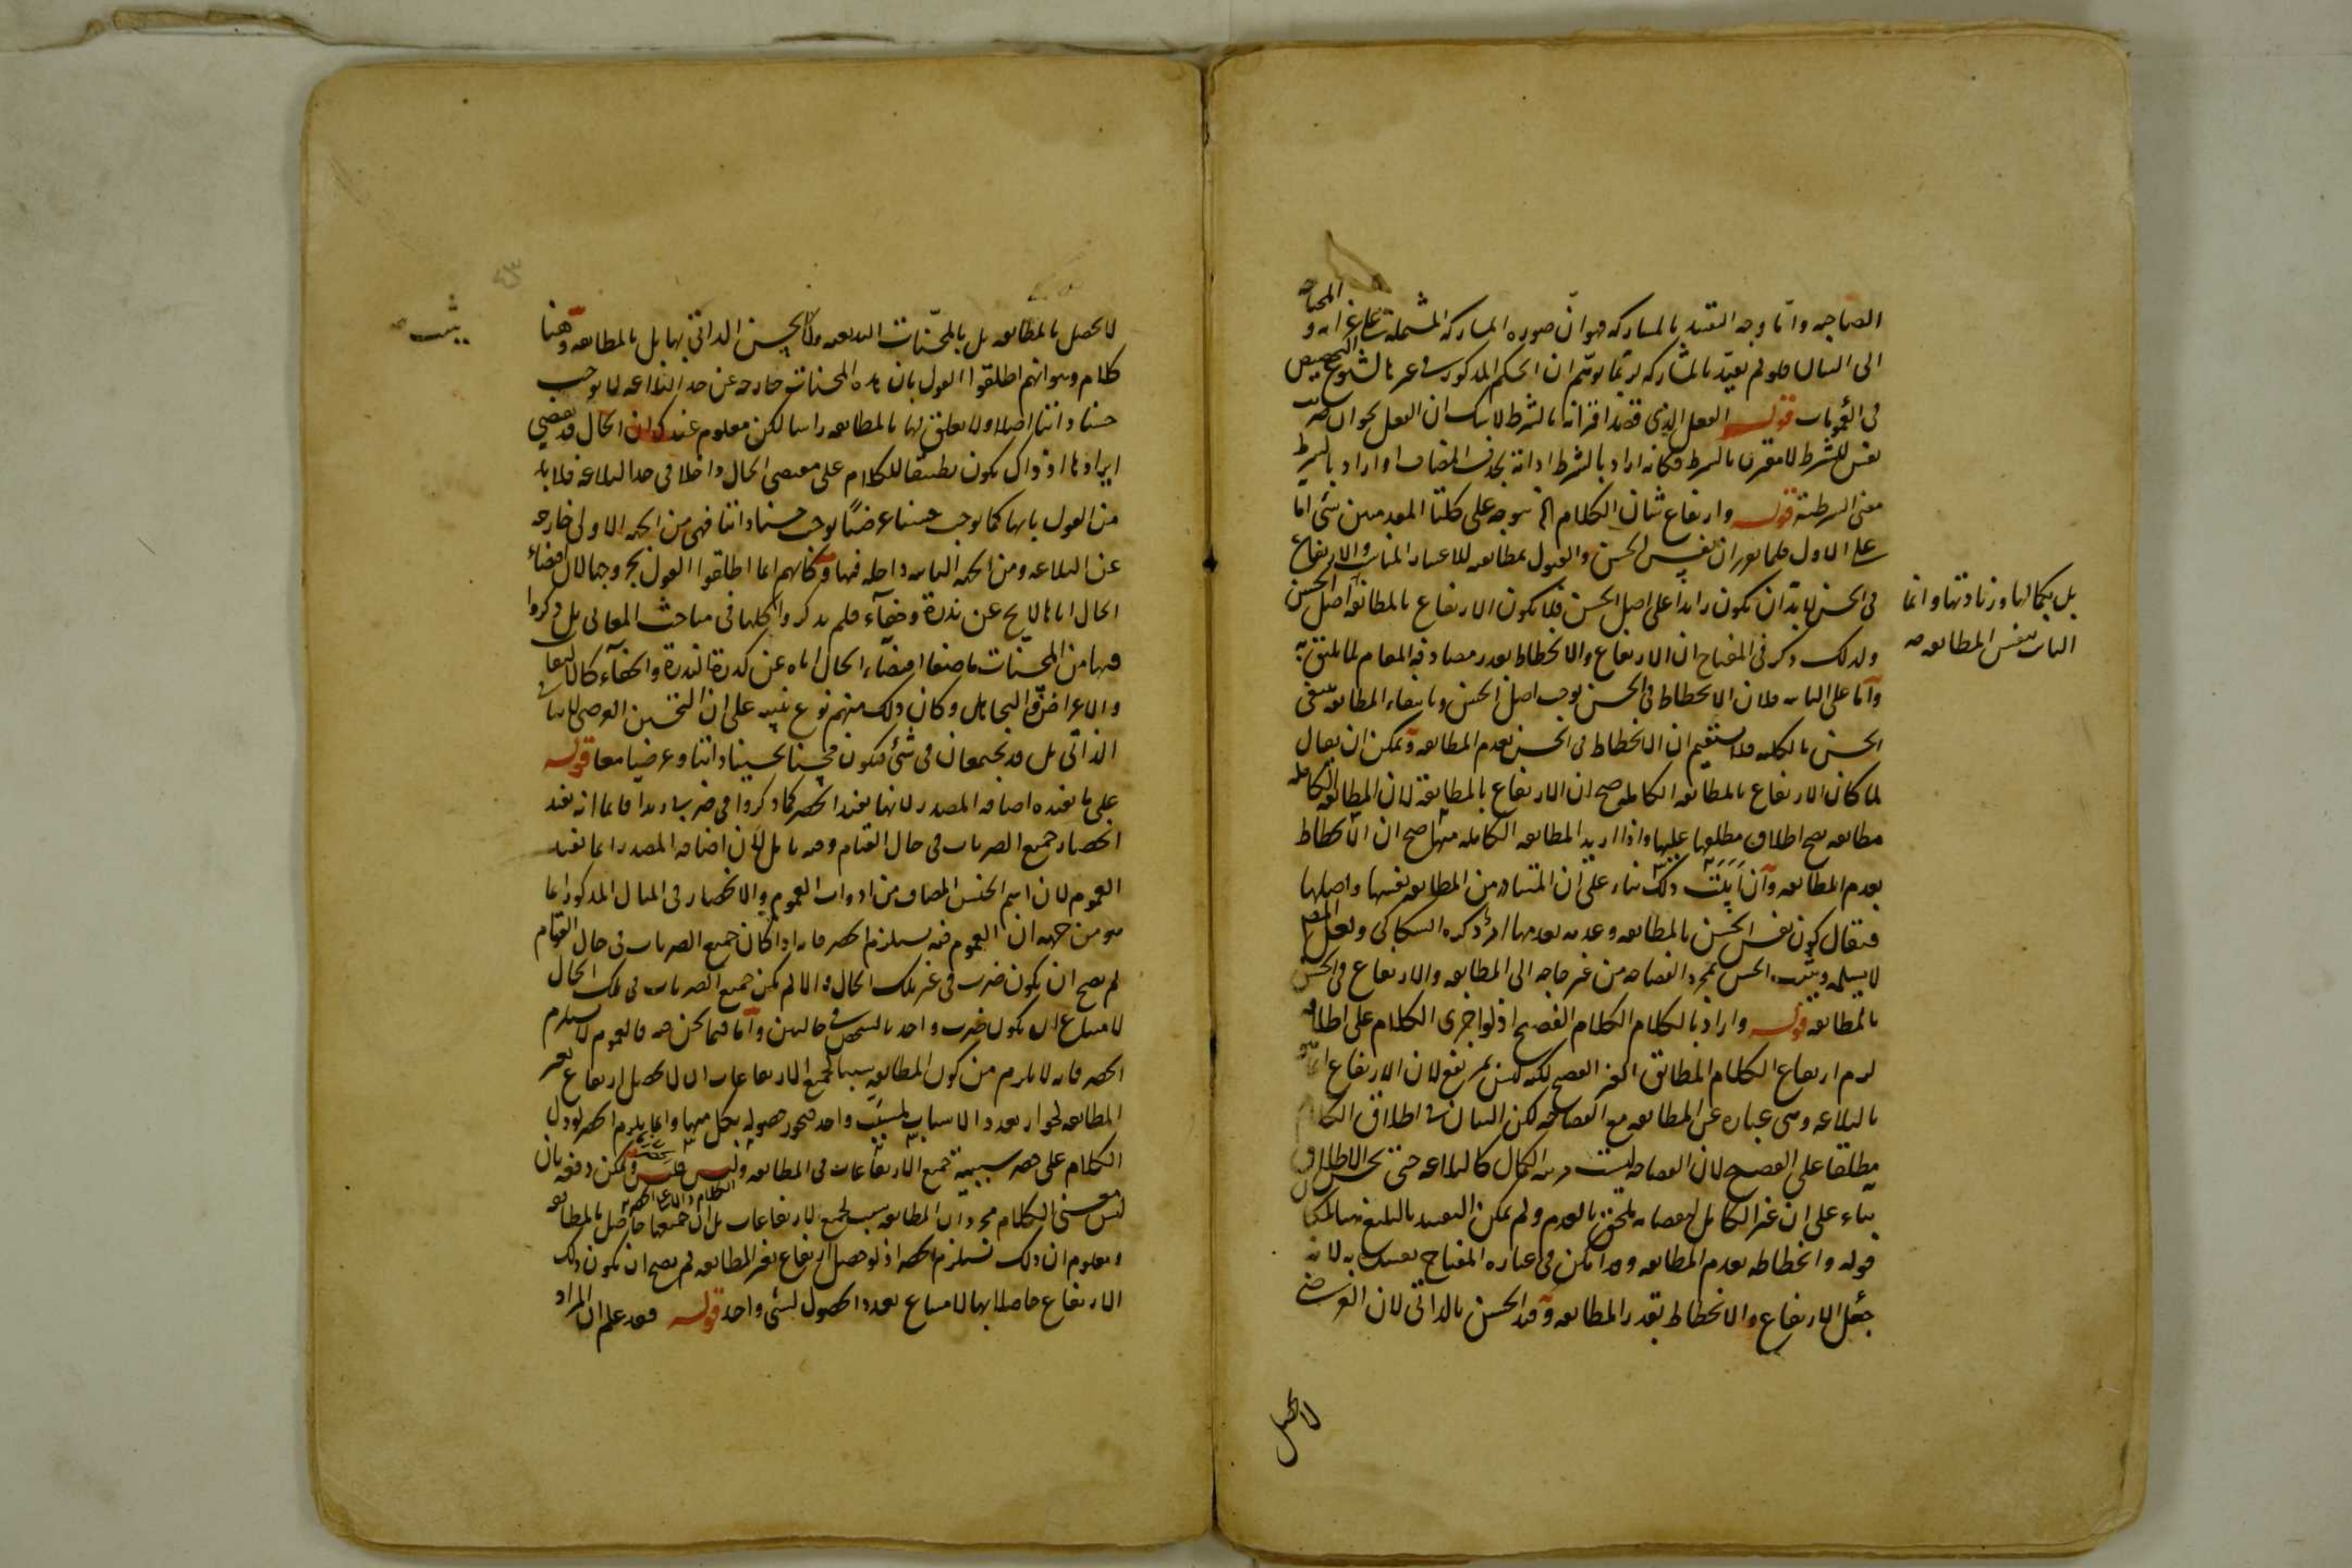 الصاحبه واما وجه التقييد بالمشاركه فهو ان صوره المشاركه المشتمله على غرابه و
المحتاجه
الى البيان فلو لم يقيد بالمشاركه لربما توهم ان الحكم المذكور
فى قوله الفعل الذى قصد اقترانه بالشرط لا شك ان الفعل
نفس للشرط لا مقترن بالشرط فكانه اراد بالشرط اداته بحذف المضاف او اراد بالشرط
معنى الشرطية قوله وارتفاع شان الكلام الخ يتوجه على كلتا المقدمتين شئ اما
على الاول فلما تقرر ان نفس الحسن والقبول بمطابقه للاعتبار المناسب والارتفاع
فى الحسن لا بد ان يكون زائدا على اصل الحسن فلا يكون الارتفاع بالمطابقه اصل الحسن
بل بكمالها وزيادتها وانما
الثابت بنفس المطابقه صح
ولذلك ذكر فى المفتاح ان الارتفاع والانحطاط بقدر مصادفه المقام لما يليق به
واما على الثانيه فلان الانحطاط فى الحسن يوجب اصل الحسن وبانتفاء المطابقه ينتفى
الحسن بالكليه فلا يستقيم ان الانحطاط فى الحسن بعدم المطابقه ويمكن ان يقال
لما كان الارتفاع بالمطابقه الكامله صح ان الارتفاع بالمطابقة لان المطابقه الكامله
مطابقه يصح اطلاق مطلقها عليها واذا اريد المطابقه الكامله منها صح ان الانحطاط
بعدم المطابقه وان ابيت ذلك بناء على ان المتبادر من المطابقه نفسها واصلها
فيقال كون نفس الحسن بالمطابقه وعدمه بعدمها امر ذكره السكاكى ولعل المص
لا يسلمه ويثبت الحسن بمجرد الفصاحه من غير حاجه الى المطابقه والارتفاع فى الحسن
بالمطابقه قوله واراد بالكلام الكلام الفصيح اذ لو اجرى الكلام على اطلاقه
لزم ارتفاع الكلام المطابق الغير الفصيح لكنه ليس بمرتفع لان الارتفاع انما هو
بالبلاغه وهى عباره عن المطابقه مع الفصاحه لكن الشان فى اطلاق الكلام
مطلقا على الفصيح لان الفصاحه ليست مرتبه الكمال كالبلاغه حتى يحسن الاطلاق
بناء على ان غير الكامل ملحق بالعدم ولم يمكن التقييد بالبليغ
قوله وانحطاطه بعدم المطابقه وهذا يمكن فى عباره المفتاح تقييده به لانه
جعل الارتفاع والانحطاط بقدر المطابقه وقيد الحسن بالذاتى لان العرضى
لا يحصل
لا يحصل بالمطابقه بل بالمحسنات البديعيه ولا يحسن الذاتى بها بل بالمطابقه وههنا
كلام وهو انهم اطلقوا القول بان هذه المحسنات خارجه عن حد البلاغه لا يوجب
حسنا ذاتيا اصلا ولا تعلق لها بالمطابقه راسا لكن معلوم عندك ان الحال قد يقتضى
ايرادها اذ ذاك يكون تطبيقا للكلام على مقتضى الحال داخلا فى حد البلاغه فلا بد
من القول بانها كما يوجب حسنا عرضيا يوجب حسنا ذاتيا فهى من الجهه الاولى خارجه
عن البلاغه ومن الجهه الثانيه داخله فيها وكانهم انما اطلقوا القول بخروجها لان اقتضاء
الحال اياها لا يخ عن ندرة وخفاء فلم يذكروا كلها فى مباحث المعانى بل ذكروا
فيها من المحسنات ما صفا اقتضاء الحال اياه عن كدرة الندرة والخفاء كالالتفات
والاعراض والتجاهل وكان ذلك منهم نوع تنبيه على ان التحسين العرضى لا ينافى
الذاتى بل قد يجتمعان فى شئ فيكون محسنا تحسينا ذاتيا وعرضيا معا قوله
على ما يفيده اضافه المصدر لانها تفيد الحصر كما ذكروا فى ضربى زيدا قائما انه يفيد
انحصار جميع الضربات فى حال القيام وفيه تامل لان اضافه المصدر انما تفيد
العموم لان اسم الجنس المضاف من ادوات العموم والانحصار فى المثال المذكور انما
هو من جهه ان العموم فيه يستلزم الحصر فانه اذا كان جميع الضربات فى حال القيام
لم يصح ان يكون ضرب فى غير تلك الحال والا لم يكن جميع الضربات فى تلك الحال
لامتناع ان يكون ضرب واحد بالشخص فى حالين واما فيما نحن فيه فالعموم لا يستلزم
الحصر فانه لا يلزم من كون المطابقه سببا لجميع الارتفاعات ان لا يحصل ارتفاع بغير
المطابقه لجواز تعدد الاسباب لمسبب واحد فيجوز حصوله بكل منها وانما يلزم الحصر لو دل
الكلام على حصر سببية جميع الارتفاعات فى المطابقه وليس فليس ويمكن دفعه بان
ليس معنى الكلام مجرد ان المطابقه سبب لجميع الارتفاعات بل ان جميعها حاصل بالمطابقه
ومعلوم ان ذلك يستلزم الحصر اذ لو حصل ارتفاع بغير المطابقه لم يصح ان يكون ذلك
الارتفاع حاصلا بها لامتناع تعدد الحصول لشئ واحد قوله فقد علم ان المراد